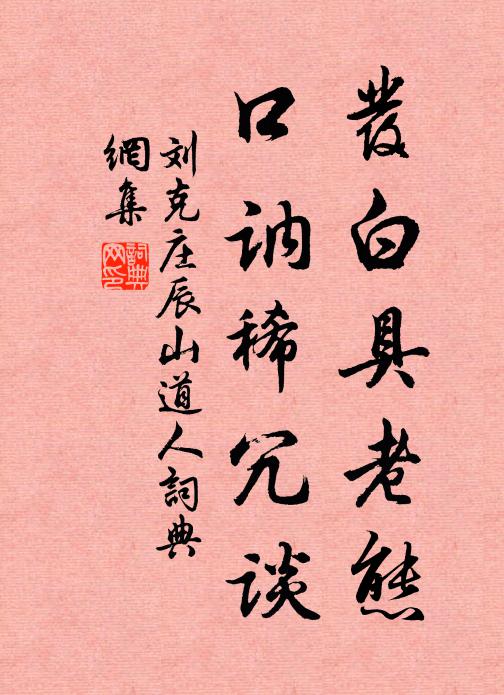 發白具老熊
口讷稀冗谈
刘克庄辰山道人詞典
網集
詞典
网印